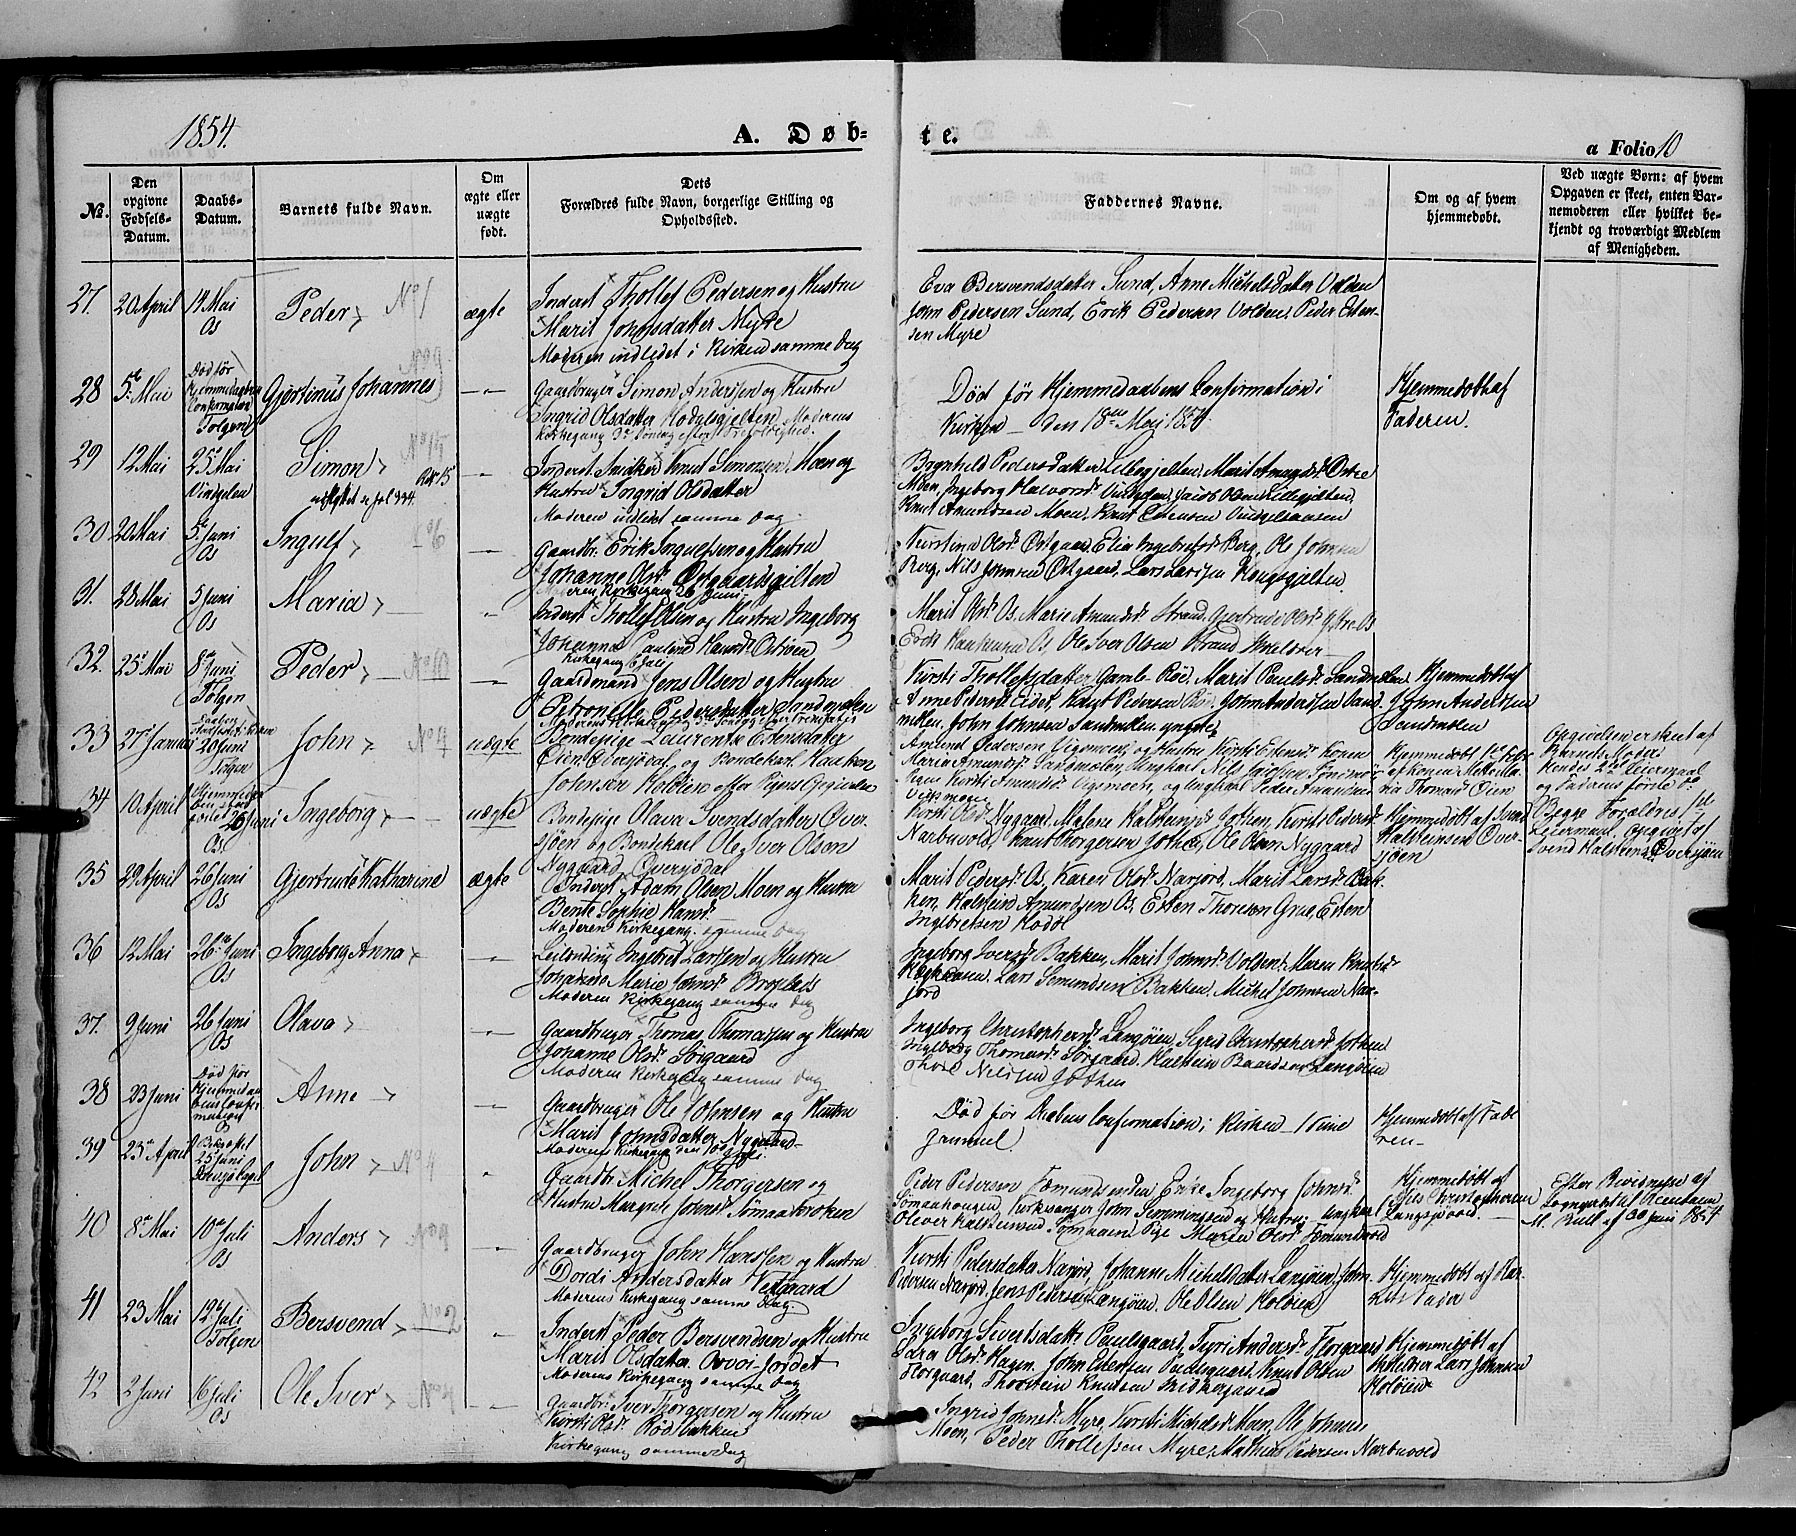 1854.
A. Døb-
te.
a Folio 10
No.
Den opgivne Fødsels-Datum.
Daabs-Datum.
Barnets fulde Navn.
Om ægte eller uægte født.
Dets Forældres fulde Navn, borgerlige Stilling og Opholdssted.
Faddernes Navne.
Om og af hvem hjemmedøbt.
Ved uægte Børn: af hvem Opgaven er skeet, enten Barnemoderen eller hvilket bekjendt og troværdigt Medlem af Menigheden.
27. 20 April 14 Mai Os Peder No 1 ægte
Inderst Thollef Pedersen og Hustru
Marit Johnsdatter Myre
Moderen indledet i Kirken samme Dag
Eva Bersvendsdatter Sund, Anne Michelsdatter Volden
John Pedersen Sund, Erik Pedersen Volden, Peder Esten-
sen Myre
28 5te Mai Død før Hjemmedaabens Confirmation Tolgen Gjertinus Johannes No 3 -"-
Gaardbruger Simon Andersen og Hustru
Ingrid Olsdatter Hodalsgjelten, Moderens
Kirkegang
Død før Hjemmedaabens Confirmation i
Kirken den 18de Mai 1854
Hjemmedøbt af
Faderen.
29 12 Mai 25 Mai Vingelen Simon No 15 -"-
udflyttet fol 334
Inderst Smidker Knut Simonsen Moen og
Hustru Ingrid Olsdatter
Moderen indledt samme Dag.
Pedersdatter Lillegjelten, Marit
Moen, Ingeborg Halvorsd. Jacob Olsen Lillegjelten,
Knut Amundsen Moen, Knut Estensen
30 20 Mai 5 Juni Os Ingulf No 6 -"-
Gaardbr. Erik Ingulfsen og Hustru
Johanne Olsd. Østgaardsgjelten
Moderens Kirkegang 26 Juni
Kirstine Olsd. Østgaard, Elia Ingebretsd. Berg, Ole Johnsen
Berg, Nils Johnsen Østgaard, Lars Larsen Kongsgjelten
31. 28 Mai 5 Juni Os Maria "
Inderst Thollef Olsen og Hustru Ingeborg
Johanna Pauline Hansd. Østrøen
Kirkegang
Marit Olsd. Os, Marie Amundsd. Strand, Gjertrude Olsd. Os
Os, Ole Iver Olsen Strand
32. 25 Mai 8de Juni Tolgen Peder No 10 -"-
Gaardmand Jens Olsen og Hustru
Petronelle Pedersdatter Sandmælen
Kirsti Thollefsdatter Gamle Røe, Marit Paulsd. Sandmælen
Anne Pedersd. Eidet, Knut Pedersen Røe, John Andersen Sand-
mælen, John Johnsen Sandmælen yngste
Hjemmedøbt af
John Andersen
Sandmælen
33 27 Januar 20 Juni Tolgen John No 4 uægte
Bondepige Laurentse Estensdatter
Øien, og Bondekarl Haaken
Johnsen Holøien efter Pigens Opgivelse
Amund Pedersen Vigsmoen, og Hustru Kirsti Estensd.
Maria Amundsd. Sandmælen, Ungkarl Nils
Pige Kirsti Amundsd. Vigsmoen, og Ungkarl Peder Amundsen
Vigsmoen
Hjemmedøbt
af Konen Mette Ma-
ria Thomasd. Øien
Opgivelsen er skeet af
Barnets Moder
hendes 2det Leiermaal
og Faderens første Do.
34 10 April 26 Juni Os Ingeborg uægte
Bondepige Olava Svendsdatter Øver-
sjøen og Bondekarl Ole Iver Olsen
Nygaard Øversjødal
Kirsti Olsd. Nygaard, Malene Halsteinsd. Jothen, Kirsti Pedersd.
Narbuvold, Knut Thorgersen Jothen, Ole Olsen Nygaard
Hjemmedøbt af Svend
Halsteinsen Øver-
sjøen
Begge Forældres 1ste
Leiermaal. Opgivet af
Svend Halsteins. Øversjøen
35 29 April 26 Juni Os Gjertrude Katharine ægte
Inderst Adam Olsen Moen og Hustru
Bente Sophie Hansd.
Moderens Kirkegang samme Dag
Marit Pedersd. Os, Karen Olsd. Narjord, Marit Larsd. Bak-
ken, Halstein Amundsen Os, Esten Thoresen Grue, Esten
Ingebretsen Hodøl
36 12 Mai 26de Juni Os Ingeborg Anna -"-
Leilending Ingebret Larsen og Hustru
Johanne Marie Johnsd.
Moderens Kirkegang samme Dag
Ingeborg Iversd. Bakken, Marit Johnsd. Volden, Maren
Lars Semundsen Bakken, Michel Johnsen Nar-
jord
37. 9 Juni 26 Juni Os Olava -"-
Gaardbruger Thomas Thomassen og Hustru
Johanne Olsd. Sørgaard
Moderens Kirkegang samme Dag
Ingeborg Christophersd. Langøien, Sigri Christophersd. Jothen
Ingeborg Thomasd. Sørgaard, Halstein Baardsen Langøien
Nilssen Jothen
38 23 Juni Død før Hjemmedaabens Confirmation Anne -"-
Gaardbruger Ole Johnsen og Hustru
Marit Johnsdatter Nygaard
Moderens Kirkegang den 10de Juli
Død før Daabens Confirmation i Kirken
gammel
Hjemmedøbt af Fade-
ren
39 23 April 25 Juni John No 4 "
Gaardbr. Michel Thorgersen og
Hustru Margrete Johnsd. Sømaakroken
Peder Pedersen Femundsenden, Enke Ingeborg Johnsd.
Sømaahaugen, Kirkesanger John Semmingsen og Hustru, Ungkarl
Oliver Halsteinsen Sømaaen, Pige Maren Olsd. Femundvold
Hjemmedøbt af
Christophersen
Efter Bevidnelse af
Sognepræst til Rendalen
M. Bull af 30 Juni 1854
40 8de Mai 10de Juli Os Anders No 9 -"-
Gaardbruger John Hanssen og Hustru
Dordi Andersdatter Vestgaard
Moderens Kirkegang samme Dag.
Kirsti Pedersdatter Narjord, Johanne Michelsdatter Langøien, John
Pedersen Narjord, Jens Pedersen Langøien, Ole Olsen Holøien
Hjemmedøbt af
41 23 Mai 12te Juli Tolgen Bersvend No 2 "
Inderst Peder Bersvendsen og Hustru
Marit Olsdatter Jordet
Moderens Kirkegang samme Dag
Ingeborg Sivertsdatter Paulsgaard, Andersd. Florgaard
Sara Olsd. Hagen, John Estensen Paulsgaard, Knut Olsen
Florgaard, Thorstein Knutsen
Hjemmedøbt af
Lars Johnsen
Holøien
42 2 Juni 16 Juli Os Ole Iver No 4 " "
Gaardbr. Iver Thorgersen og Hustru
Kirsti Olsd. Rødsbakken
Kirkegang samme Dag
Ingrid Johnsd. Myre, Kirsti Michelsd. Moen, Ole Johnsen
Moen, Peder Thollefsen Myre, Mathias Pedersen Narbuvold